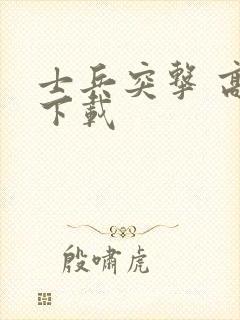 士兵突擊 高
下載
殷嘯虎